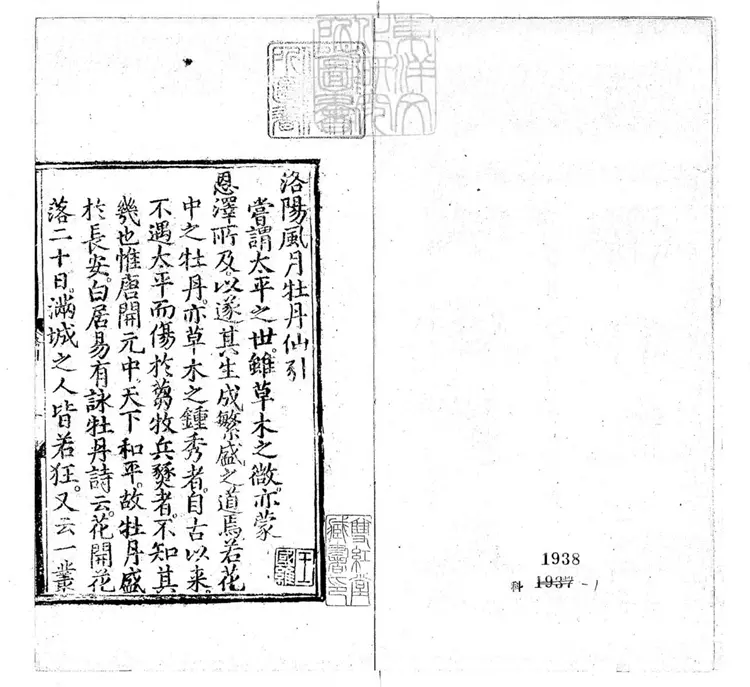 洛陽風月牡丹仙引
嘗謂太平之世。雖草木之微。亦蒙
恩澤所及。以遂其生成繁盛之道焉若花
中之牡丹。亦草木之鍾秀者。自古以来。
不遇太平而傷於蒭牧兵燹者。不知其
幾也惟唐開元中。天下和平。故牡丹盛
於長安。白居易有詠牡丹詩云。花開花
落二十日。滿城之人皆若狂。又云一叢
雙紅堂
藏書印
1938
科 1937 -1